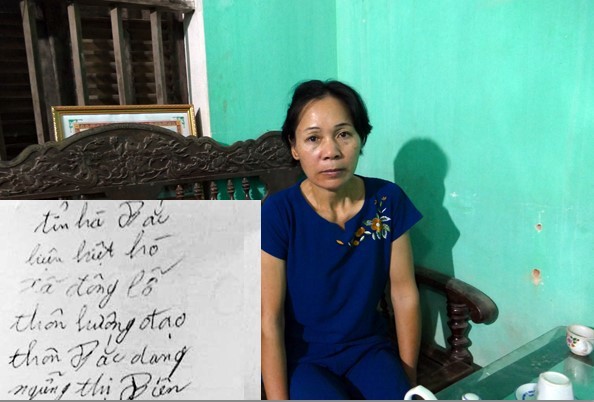 tỉn hà Bắc
hiện hiêt hò
xã đông lỗ
thôn hưởng đạo
thôn Bắc dạng
ngững thị Biên